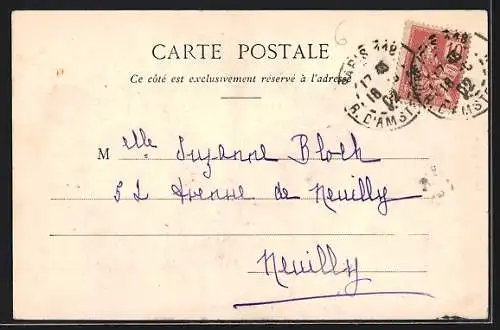 6
CARTE POSTALE
Ce côté est exclusivement réservé à l'adresse
Melle Suzanne Bloch
52 Avenue de Neuilly
Neuilly
PARIS 118
17
18
02
R. D'AMST
10
02
R. D'AMST